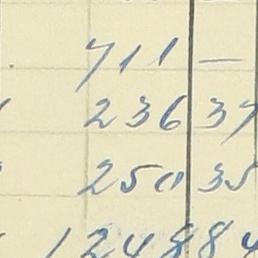 711 —
236 37
250 35
124884